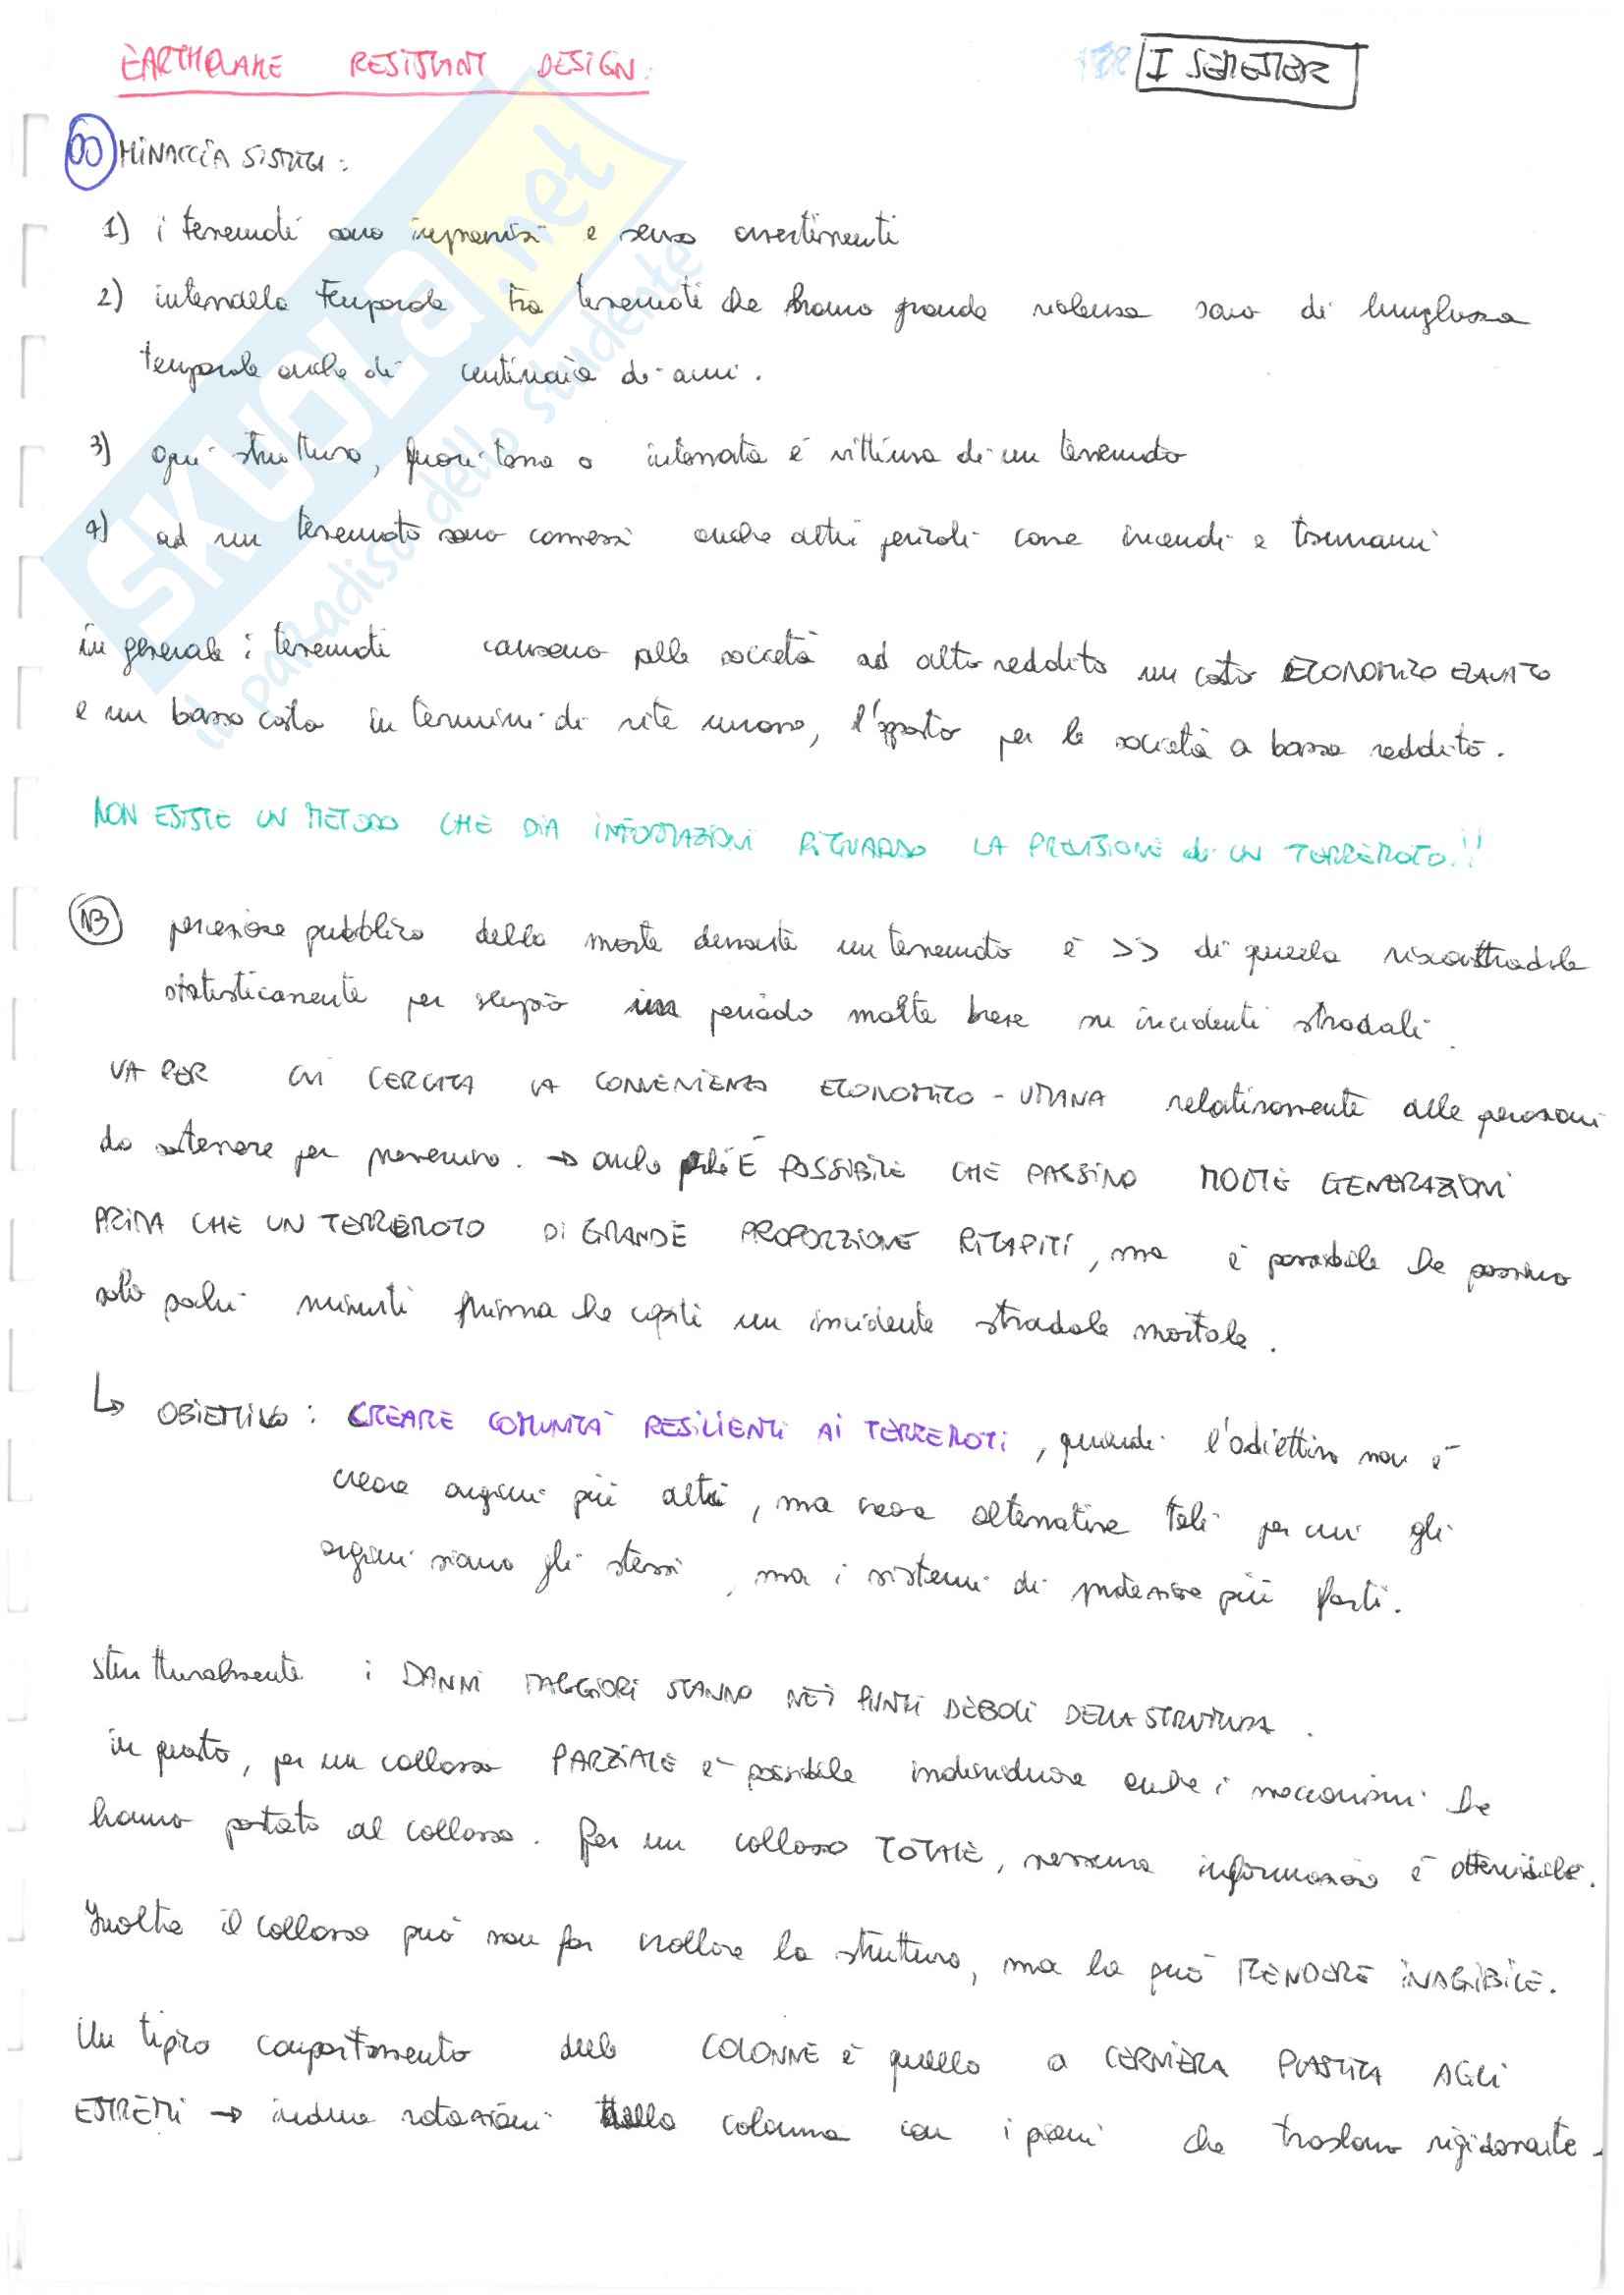 EARTHQUAKE RESISTANT DESIGN.
I SEMESTER
00 MINACCIA SISMICA:
1) i terremoti sono improvvisi e senza avvertimenti
2) intervallo temporale tra terremoti che hanno grande violenza sono di lunghezza
temporale anche di centinaia di anni.
3) ogni struttura, fuori terra o interrata è vittima di un terremoto
4) ad un terremoto sono connessi anche altri pericoli come incendi e tsunami
SKUOLA.net
il paradiso dello studente
in generale i terremoti causano alle società ad alto reddito un costo ECONOMICO ELEVATO
e un basso costo in termini di vite umane, l'opposto per le società a basso reddito.
NON ESISTE UN METODO CHE DIA INFORMAZIONI RIGUARDO LA PREVISIONE di UN TERREMOTO!!
NB percezione pubblica della morte durante un terremoto è >> di quella stradale
statisticamente per esempio in periodo molto breve su incidenti stradali.
VA PER CUI CERCATA LA CONVENIENZA ECONOMICO-UMANA relativamente alle
da sostenere per prevenire. → anche perché È POSSIBILE CHE PASSINO MOLTE GENERAZIONI
PRIMA CHE UN TERREMOTO DI GRANDE PROPORZIONE RICAPITI, ma è possibile che passino
solo pochi minuti prima che capiti un incidente stradale mortale.
↳ OBIETTIVO: CREARE COMUNITÀ RESILIENTI AI TERREMOTI, quindi l'obiettivo non è
creare argini più alti, ma creare alternative tali per cui gli
argini siano gli stessi, ma i sistemi di protezione più forti.
strutturalmente i DANNI MAGGIORI STANNO NEI PUNTI DEBOLI DELLA STRUTTURA.
in questo, per un collasso PARZIALE è possibile individuare anche i meccanismi che
hanno portato al collasso. Per un collasso TOTALE, nessuna informazione è ottenibile.
Inoltre il collasso può non far crollare la struttura, ma la può RENDERE INAGIBILE.
Un tipico comportamento delle COLONNE è quello a CERNIERA PLASTICA AGLI
ESTREMI → induce rotazioni della colonna con i piani che traslano rigidamente.